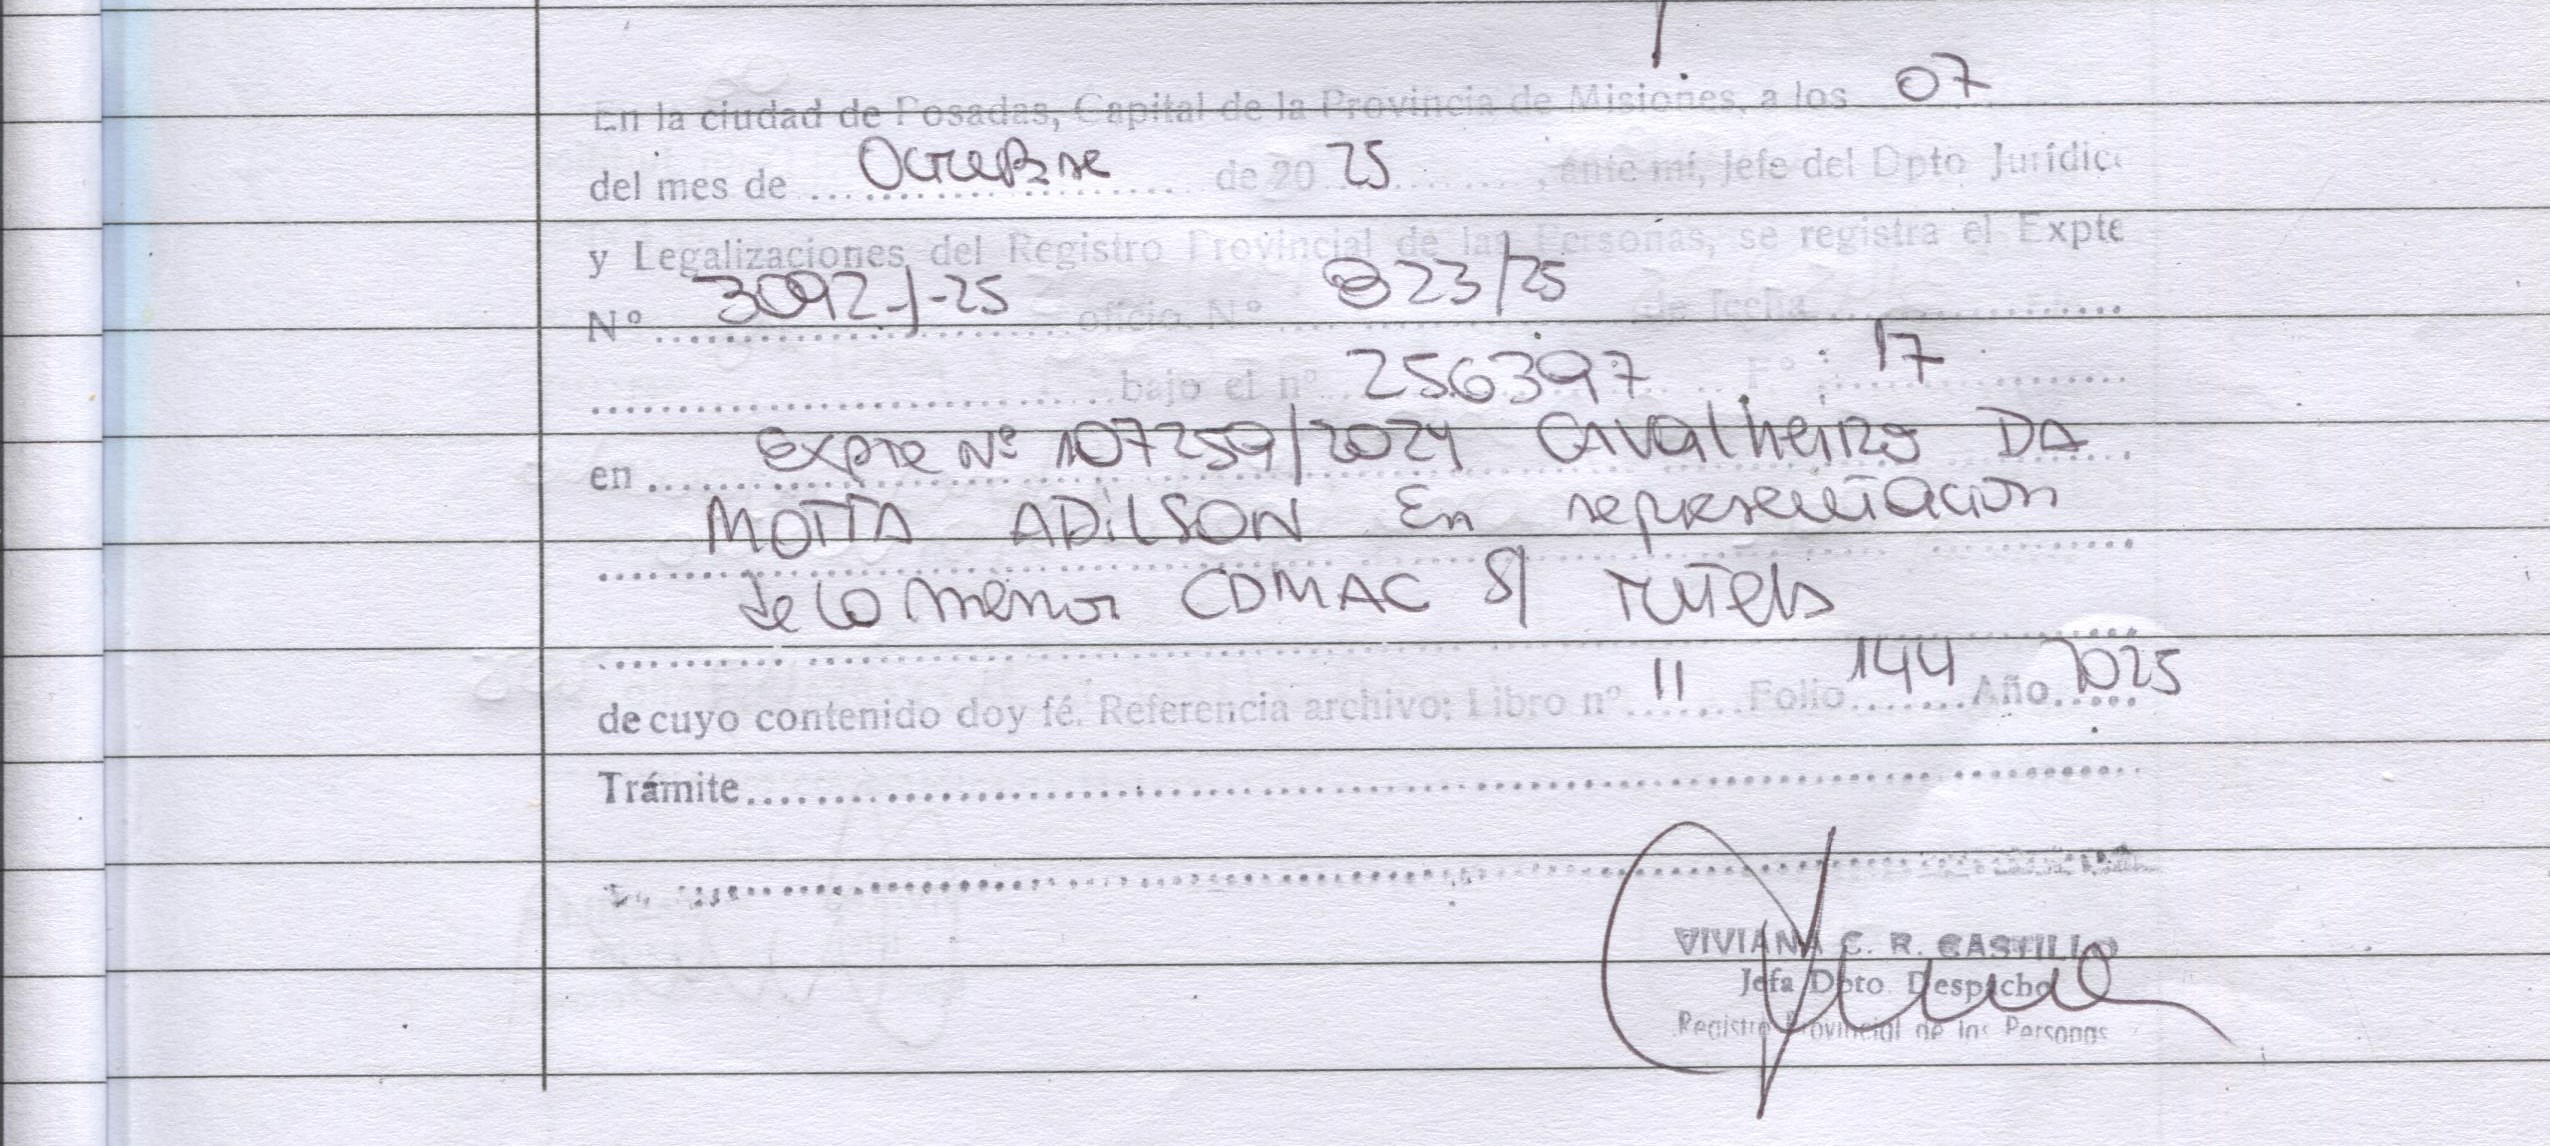 En la ciudad de Posadas, Capital de la Provincia de Misiones, a los 07
del mes de Octubre de 20 25, ante mí, Jefe del Dpto Jurídico
y Legalizaciones del Registro Provincial de las Personas, se registra el Expte
Nº 3092-J-25 oficio Nº 823/25 de fecha
bajo el nº 256397 Fº: 17
en Expte Nº 107259/2024 Cavalheiro DA
MOTTA ADILSON En representacion
de la menor CDMAC S/ Tutela
de cuyo contenido doy fé. Referencia archivo: Libro nº 11 Folio 144 Año 2025
Trámite
VIVIANA C. R. CASTILLO
Jefa Dpto Despacho
Registro Provincial de las Personas